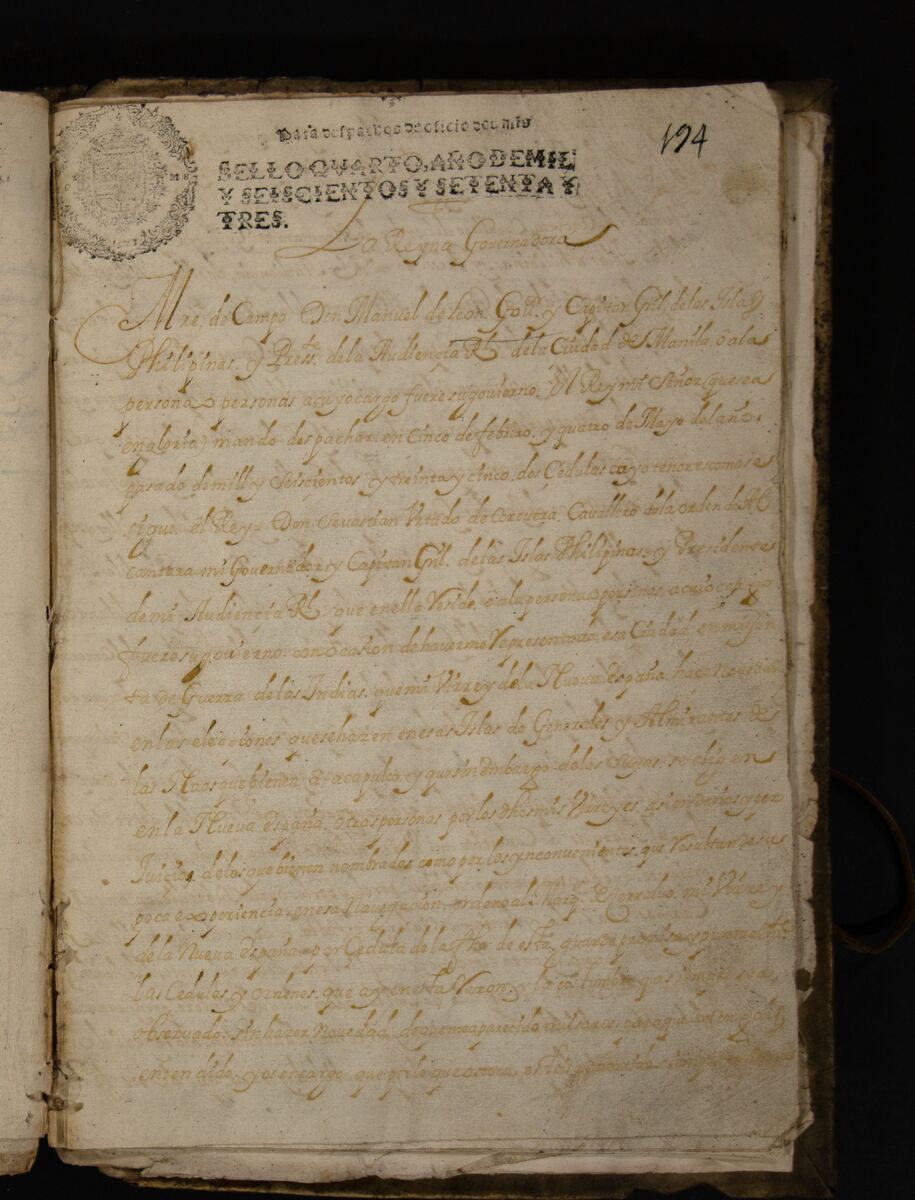 Para despachos de oficio dos mrs
194
SELLO QVARTO, AÑO DE MIL
Y SEISCIENTOS Y SETENTA Y
TRES.
La Reyna Governadora
Mre, de Campo Don Manuel de Leon. Govr. y Capitan Gnl, de las Islas
Philipinas, y Presste. de la Audiencia Rl. de la Ciudad de Manila, o a la
persona o personas a cuyo cargo fuere su govierno. El Rey mi Señor (que sea
en gloria) mando despachar en cinco de febrero, y quatro de Mayo del año
pasado de mill y Seiscientos y treinta y cinco, dos Cedulas cuyo tenor es como se
sigue. el Rey = Don Sevastian Vrtado de Corcuera, Cavallero de la orden de Al
cantara mi Governador y Capitan Gnl. de las Islas Philipinas y Presidente
de mi Audiencia Rl. que en ella Reside, o a la persona o personas, a cuio cargo
fuere su govierno, con ocasion de haverme Representado, esa Ciudad, en mi Jun
ta de Guerra de las Indias, que mi Virrey de la Nueva españa, hace
en las elecciones que se hazen en esas Islas de Generales y Almirantes de
las Naos que bienen a acapulco, y que sin embargo de las suyas, se elig en
en la Nueva españa, otras personas por los dhos mis Virreyes asi en daño y per
Juicio, de los que bienen nombrados como por los ynconvenientes, que Resultan de la
poca experiencia en esa Navegacion, ordeno al Marq. de Cerralvo, mi Virrey
de la Nueva españa por Cedula de la fha de esta, guarde precissa y puntualmte
las Cedulas y ordenes, que ay en esta Razon, y la costumbre que
observado, sin hazer novedad, de que me a parecido avisaros, para que
entendido, y os encargo que por lo que os toca,